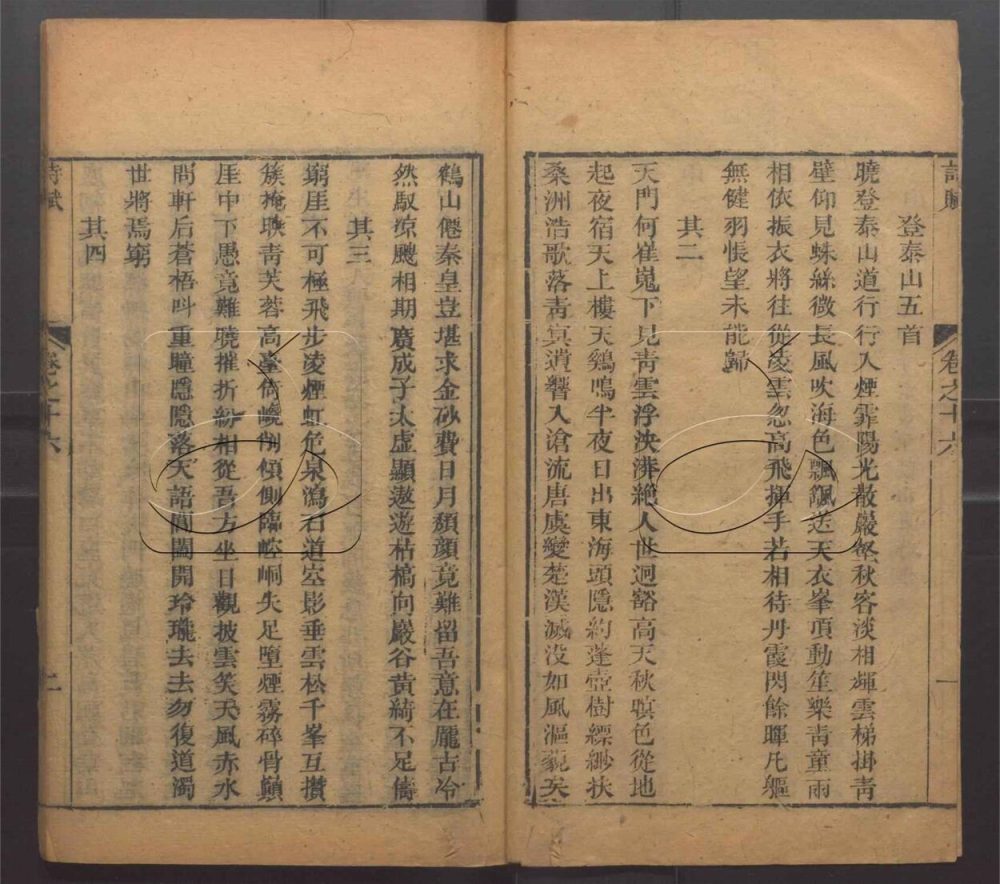 詩賦 卷之十六 一
登泰山五首
曉登泰山道行行入煙霏陽光散巖壑秋容淡相輝雲梯掛青
壁仰見蛛絲微長風吹海色飄颻送天衣峯頂動笙樂青童兩
相依振衣將往從凌雲忽高飛揮手若相待丹霞閃餘暉凡軀
無健羽悵望未能歸
其二
天門何崔嵬下見青雲浮泱漭絶人世迥豁高天秋暝色從地
起夜宿天上樓天鷄鳴半夜日出東海頭隱約蓬壺樹縹緲扶
桑洲浩歌落青冥遺響入滄流唐虞變楚漢滅没如風漚藐矣
鶴山僊秦皇豈堪求金砂費日月頽顔竟難留吾意在龐古冷
然馭凉飈相期廣成子太虛顯遨遊枯槁向巖谷黄綺不足儔
其三
窮崖不可極飛步凌煙虹危泉瀉石道空影垂雲松千峯互攢
簇掩映青芙蓉高臺倚巉削傾側臨崆峒失足墮煙霧碎骨顛
厓中下愚竟難曉摧折紛相從吾方坐日觀披雲笑天風赤水
問軒后蒼梧叫重瞳隱隱落天語閶闔開玲瓏去去勿復道濁
世將焉窮
其四
詩賦 卷之十六 二